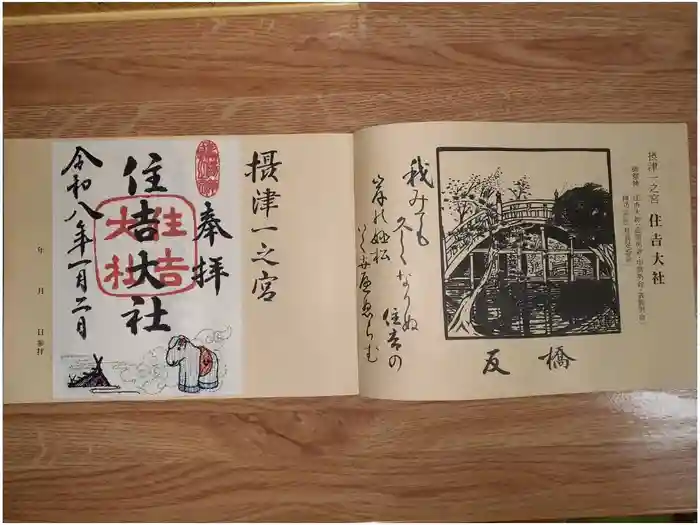 摂津一之宮 住吉大社
我みても
久しくなりぬ
住吉の
岸の姫松
いく世へぬらむ
反橋
摂津一之宮
奉拝
住吉大社
住吉大社
令和八年一月二日
年 月 日参拝